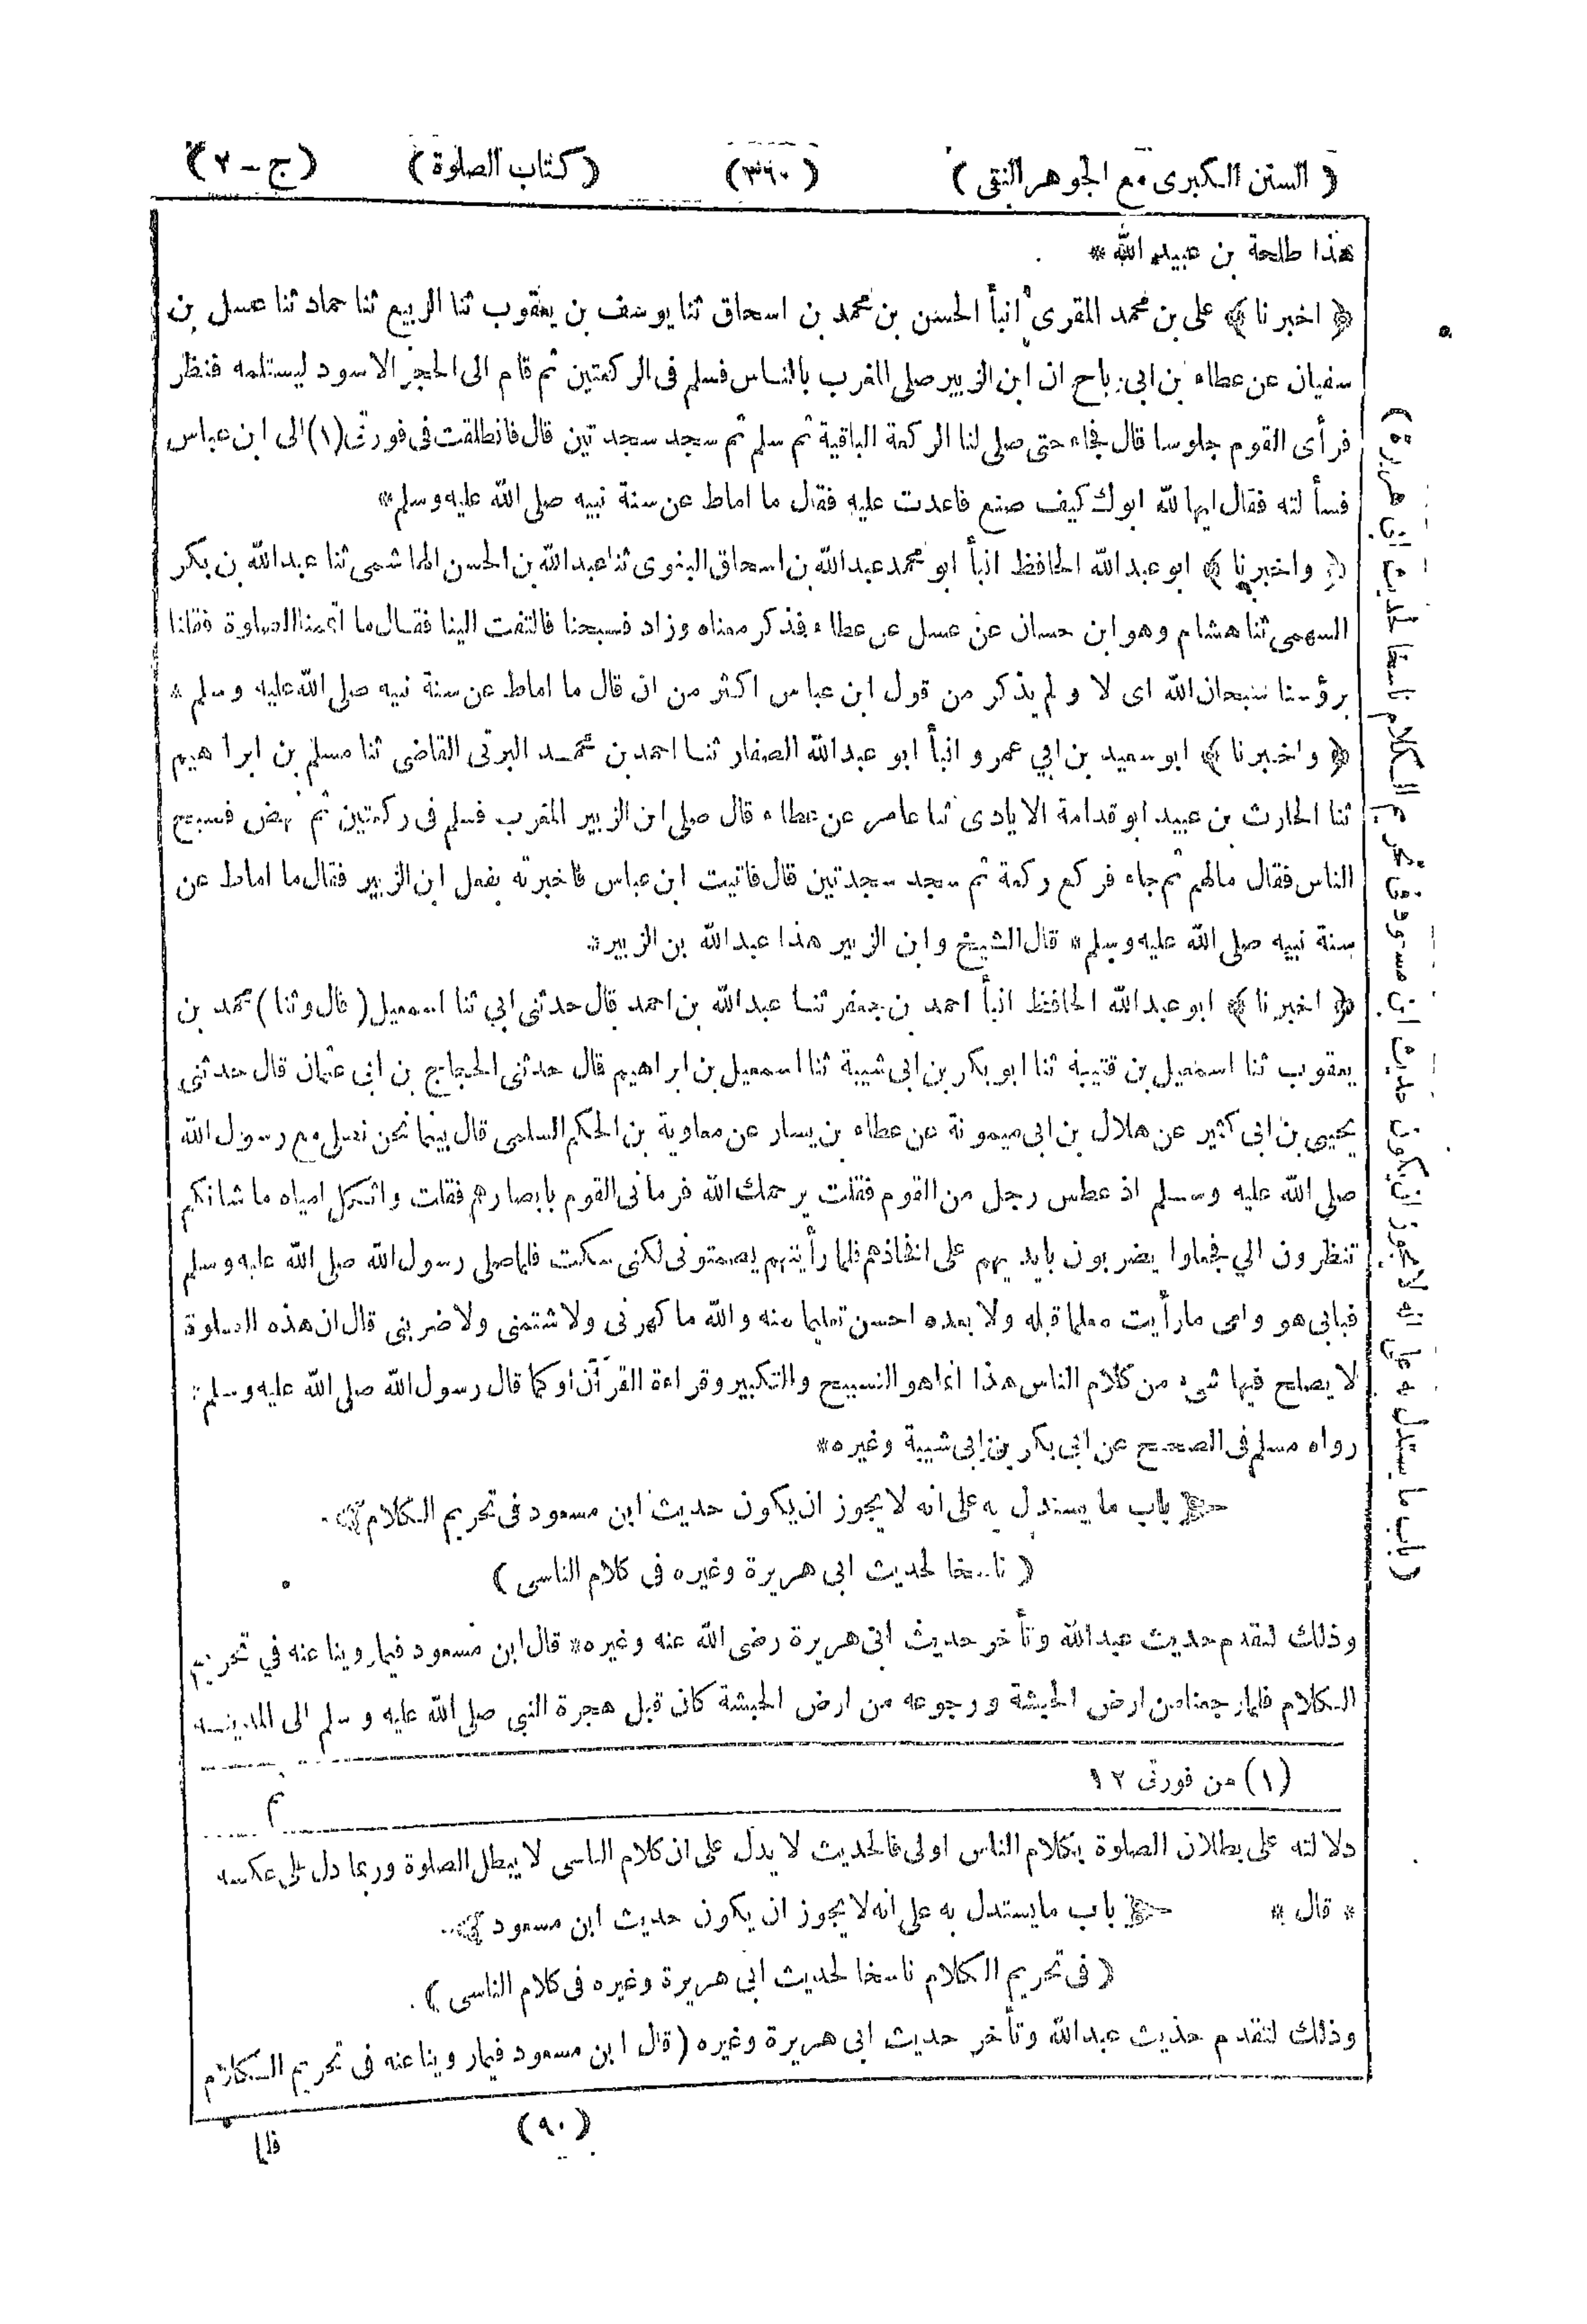 ( السنن الكبرى مع الجوهر النقى ) (٣٦٠) ( كتاب الصلوة ) ( ج - ٢ )
هذا طلحة بن عبيد الله *
﴿ اخبرنا ﴾ على بن محمد المقرئ انبأ الحسن بن محمد بن اسحاق ثنا يوسف بن يعقوب ثنا ابو الربيع ثنا حماد ثنا عسل بن
سفيان عن عطاء بن ابى رباح ان ابن الزبير صلى المغرب بالناس فسلم فى الركعتين ثم قام الى الحجر الاسود ليستلمه فنظر
فرأى القوم جلوسا قال فجاء حتى صلى لنا الركعة الباقية ثم سلم ثم سجد سجدتين قال فانطلقت فى فورتى (١) الى ابن عباس
فسألته فقال ايها لله ابوك كيف صنع فاعدت عليه فقال ما اماط عن سنة نبيه صلى الله عليه وسلم *
﴿ واخبرنا ﴾ ابو عبد الله الحافظ انبأ ابو محمد عبد الله بن اسحاق البغوى ثنا عبد الله بن الحسن الهاشمى ثنا عبد الله بن بكر
السهمى ثنا هشام وهو ابن حسان عن عسل عن عطاء فذكر معناه وزاد فسبحنا فالتفت الينا فقال ما اتممنا الصلوة فقلنا
برؤسنا سبحان الله اى لا ولم يذكر من قول ابن عباس اكثر من ان قال ما اماط عن سنة نبيه صلى الله عليه وسلم *
﴿ واخبرنا ﴾ ابو سعيد بن ابي عمرو انبأ ابو عبد الله الصفار ثنا احمد بن محمد البرتى القاضى ثنا مسلم بن ابراهيم
ثنا الحارث بن عبيد ابو قدامة الايادى ثنا عامر عن عطاء قال صلى ابن الزبير المغرب فسلم فى ركعتين ثم نهض فسبح
الناس فقال مالهم ثم جاء فركع ركعة ثم سجد سجدتين قال فاتيت ابن عباس فاخبرته بفعل ابن الزبير فقال ما اماط عن
سنة نبيه صلى الله عليه وسلم * قال الشيخ وابن الزبير هذا عبد الله بن الزبير *
﴿ اخبرنا ﴾ ابو عبد الله الحافظ انبأ احمد بن جعفر ثنا عبد الله بن احمد قال حدثنى ابي ثنا اسمعيل ( قال وثنا ) محمد بن
يعقوب ثنا اسمعيل بن قتيبة ثنا ابو بكر بن ابى شيبة ثنا اسمعيل بن ابراهيم قال حدثنى الحجاج بن ابى عثمان قال حدثنى
يحيى بن ابى كثير عن هلال بن ابى ميمونة عن عطاء بن يسار عن معاوية بن الحكم السلمى قال بينما نحن نصلى مع رسول الله
صلى الله عليه وسلم اذ عطس رجل من القوم فقلت يرحمك الله فرمانى القوم بابصارهم فقلت واثكل امياه ما شانكم
تنظرون الي فجعلوا يضربون بايديهم على افخاذهم فلما رأيتهم يصمتونى لكنى سكت فلما صلى رسول الله صلى الله عليه وسلم
فبابى هو وامى مارأيت معلما قبله ولا بعده احسن تعليما منه والله ما كهرنى ولا شتمنى ولا ضربنى قال ان هذه الصلوة
لا يصلح فيها شىء من كلام الناس هذا انما هو التسبيح والتكبير وقراءة القرآن او كما قال رسول الله صلى الله عليه وسلم *
رواه مسلم فى الصحيح عن ابى بكر بن ابى شيبة وغيره *
باب ما يستدل به على انه لا يجوز ان يكون حديث ابن مسعود فى تحريم الكلام
( ناسخا لحديث ابى هريرة وغيره فى كلام الناسى )
وذلك لتقدم حديث عبد الله وتأخر حديث ابى هريرة رضى الله عنه وغيره * قال ابن مسعود فيما روينا عنه في تحريم
الكلام فلما رجعنا من ارض الحبشة ورجوعه من ارض الحبشة كان قبل هجرة النبي صلى الله عليه وسلم الى المدينة
(١) من فورتى ١٢
م
دلالته على بطلان الصلوة بكلام الناس اولى فالحديث لا يدل على ان كلام الناسى لا يبطل الصلوة وربما دل على عكسه
* قال * باب ما يستدل به على انه لا يجوز ان يكون حديث ابن مسعود
( فى تحريم الكلام ناسخا لحديث ابى هريرة وغيره فى كلام الناسى )
وذلك لتقدم حديث عبد الله وتأخر حديث ابى هريرة وغيره ( قال ابن مسعود فيما روينا عنه فى تحريم الكلام
(٩٠)
فلما
( باب ما يستدل به على انه لا يجوز ان يكون حديث ابن مسعود فى تحريم الكلام ناسخا لحديث ابى هريرة )